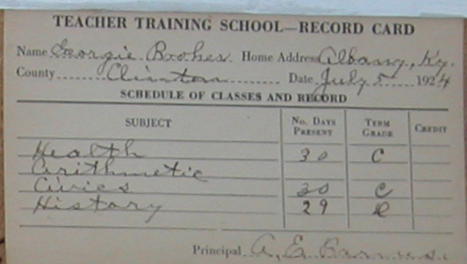 TEACHER TRAINING SCHOOL—RECORD CARD
Name Georgie Brokes. Home Address Albany, Ky.
County Clinton Date July 5 1924
SCHEDULE OF CLASSES AND RECORD
SUBJECT No. Days Present Term Grade Credit
Health 30 C
Arithmetic
Civics 30 C
History 29
Principal A. E.